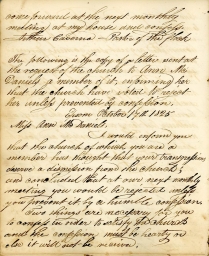 come forward at the next monthly
meeting at my house and confess
Arthur Caverno – Pastor of the Flock
The following is the copy of a letter sent at
the request of the church to Anne Mc
Daniels a member of it, informing her
that the church have voted to reject
her unless prevented by confession.
Epsom October 17th 1825
Miss Ann McDaniels,
I would inform you
that the church of which you are a
member has thought that your transgressions
deserve a dismission from the church,
and concluded that at our next monthly
meeting you would be rejected unless
you prevent it by a humble confession.
Two things are necessary by you
to comply in order to satisfy the church
and the confession must be hearty or
else it will not be